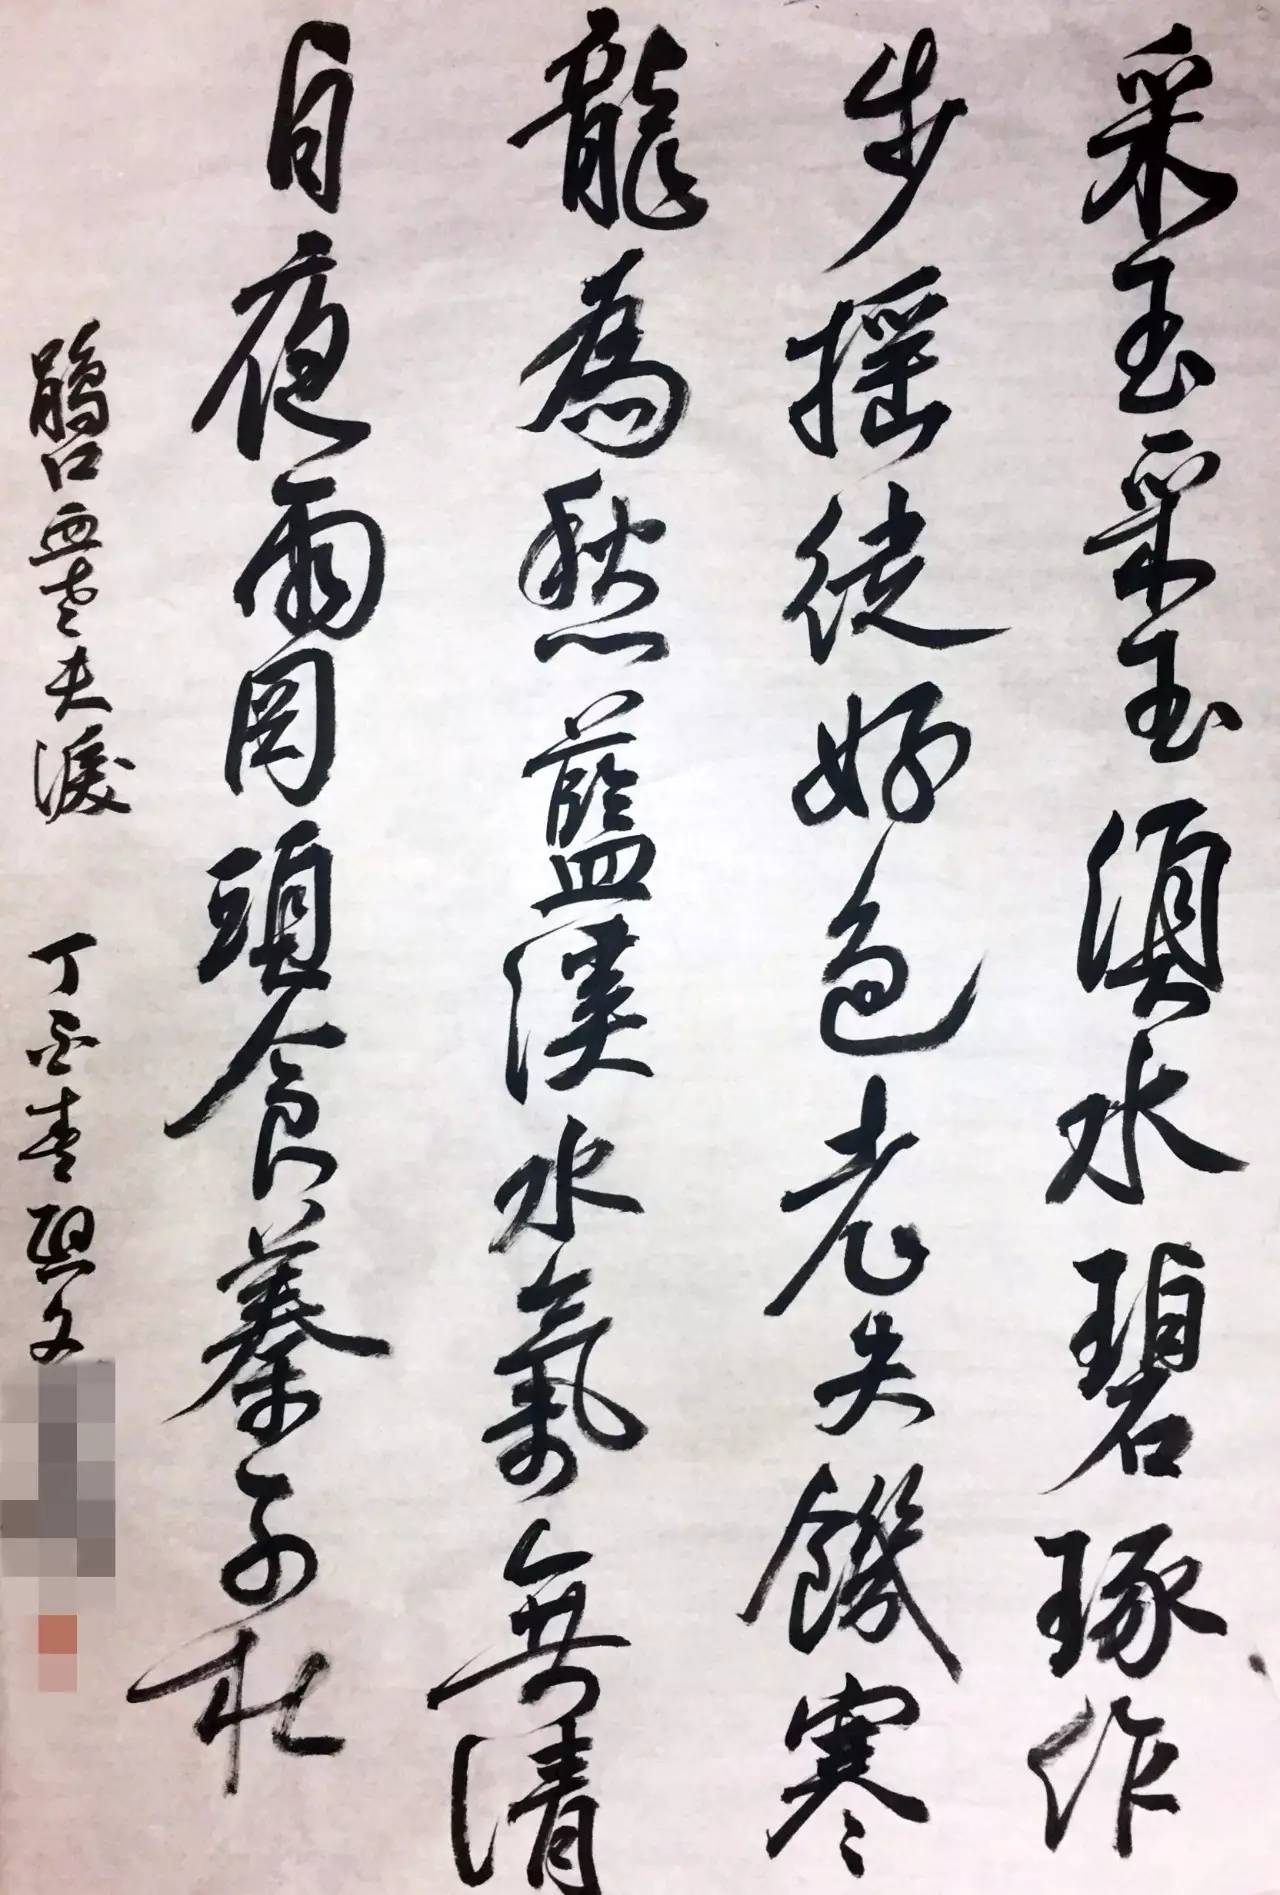 采玉采玉須水碧琢作
步摇徒好色老夫饑寒
龍為愁藍溪水氣無清
白夜雨岡頭食蓁子杜
鵑口血老夫淚 丁酉春熙文